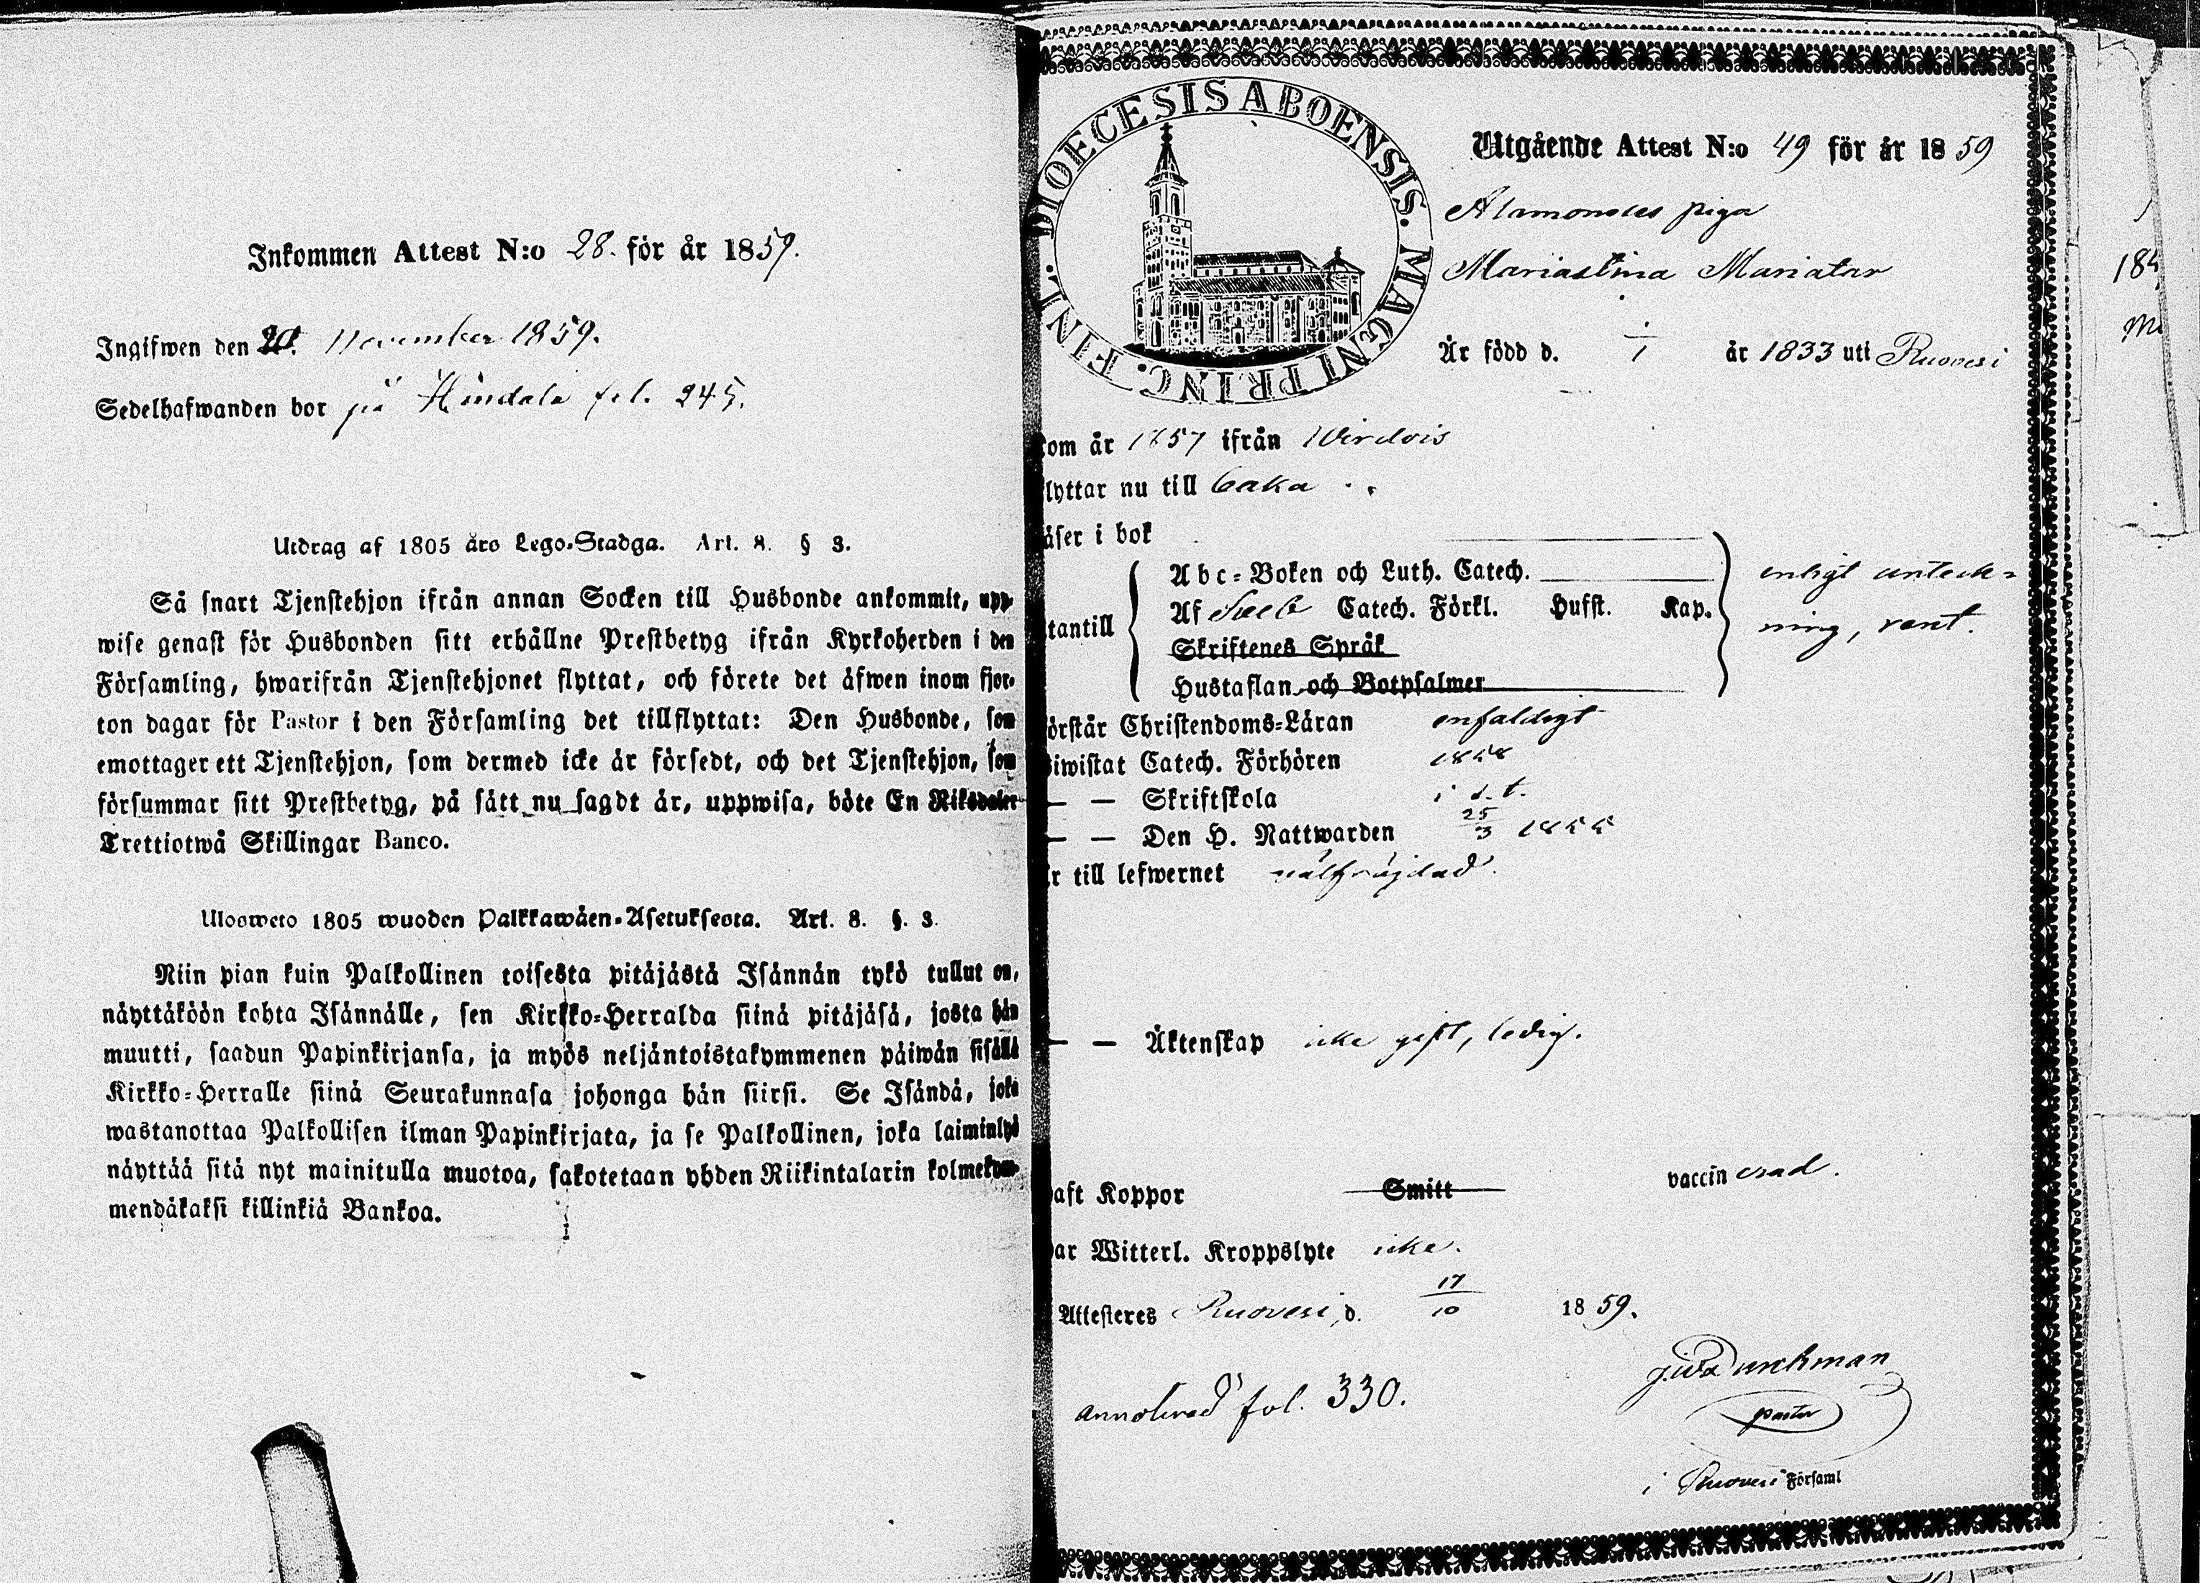 Inkommen Attest N:o 28. för år 1859.
Ingifwen den 20. November 1859.
Sedelhafwanden bor på Hindala fol. 245.
Utdrag af 1805 års Lego-Stadga. Art. 8. § 3.
Så snart Tjenstehjon ifrån annan Socken till Husbonde ankommit, upp-
wise genast för Husbonden sitt erhållne Prestbetyg ifrån Kyrkoherden i den
Församling, hwarifrån Tjenstehjonet flyttat, och förete det äfwen inom fjor-
ton dagar för Pastor i den Församling det tillflyttat: Den Husbonde, som
emottager ett Tjenstehjon, som dermed icke är försedt, och det Tjenstehjon, som
försummar sitt Prestbetyg, på sätt nu sagdt är, uppwisa, böte En Riksdaler
Trettiotwå Skillingar Banco.
Ulosweto 1805 wuoden Palkkawäen-Asetuksesta. Art. 8. §. 3.
Niin pian kuin Palkollinen toisesta pitäjästä Isännän tykö tullut on,
näyttäköön kohta Isännälle, sen Kirkko-Herralda siinä pitäjäsä, josta hän
muutti, saadun Papinkirjansa, ja myös neljäntoistakymmenen päiwän sisällä
Kirkko-Herralle siinä Seurakunnasa johonga hän siirsi. Se Isändä, joka
wastanottaa Palkollisen ilman Papinkirjata, ja se Palkollinen, joka laiminlyö
näyttää sitä nyt mainitulla muotoa, sakotetaan yhden Riikintalarin kolmekym-
mendäkaksi killinkiä Bankoa.
DIOECESIS ABOENSIS. MAGNI PRINC. FINL.
Utgående Attest N:o 49 för år 1859
piga
Mariastina Mariatar
Är född d. 1/1 år 1833 uti Ruovesi
kom år 1857 ifrån Wirdois
lyttar nu till baka
äser i bok
Abc-Boken och Luth. Catech. enligt anteck-
tantill Af Sveb Catech. Förkl. Hufst. Kap. ning, rent.
Skriftenes Språk
Hustaflan och Botpsalmer
örstår Christendoms-Läran enfaldigt
iwistat Catech. Förhören 1858
— — Skriftskola i s. t.
— — Den H. Nattwarden 25/3 1855
r till lefwernet välfräjdad.
— — Äktenskap icke gift, ledig.
aft Koppor Smitt vaccinerad.
ar Witterl. Kroppslyte icke.
Attesteres Ruovesi, d. 17/10 1859.
Durchman
annoterad fol. 330.
pastor
i Ruovesi Församl